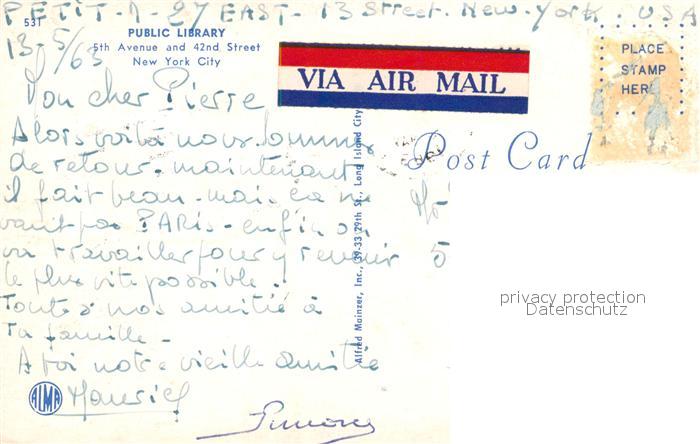 PETIT. 27 EAST - 13 Street. New-York. USA
531
PUBLIC LIBRARY
5th Avenue and 42nd Street
New York City
13-5/63
VIA AIR MAIL
PLACE
STAMP
HERE
Mon cher Pierre
Post Card
Alors voilà nous sommes
de retour. maintenant
il fait beau. mais ça ne
vaut pas PARIS. enfin on
va travailler pour y revenir
le plus vite possible.
Toutes nos amitié à
Ta famille -
A toi notre vieille amitié
Maurice
Simone
5
Alfred Mainzer, Inc., 39-33 29th St., Long Island City
ALMA
privacy protection
Datenschutz